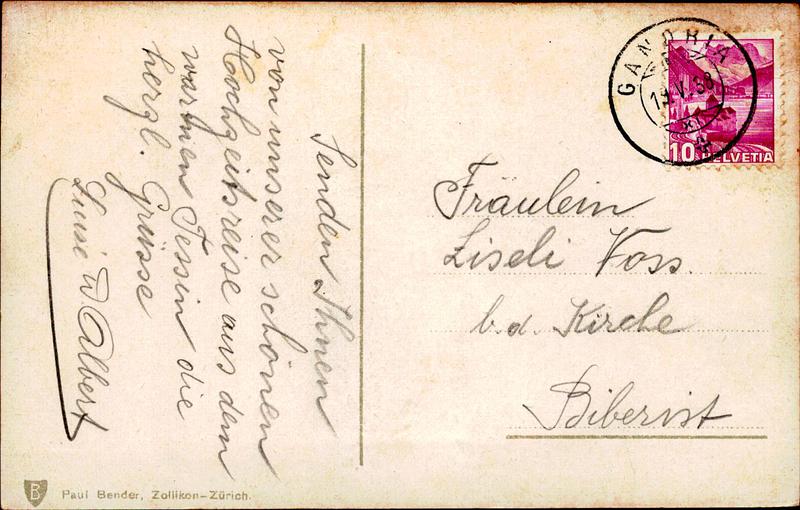 Senden Ihnen
von unserer schönen
Hochzeitsreise aus dem
warmen Tessin die
herzl. Grüsse
Luise u. Albert
GANDRIA
19.V.38
10 HELVETIA
Fräulein
Liseli Voss.
b. d. Kirche
Biberist
B
Paul Bender, Zollikon-Zürich.